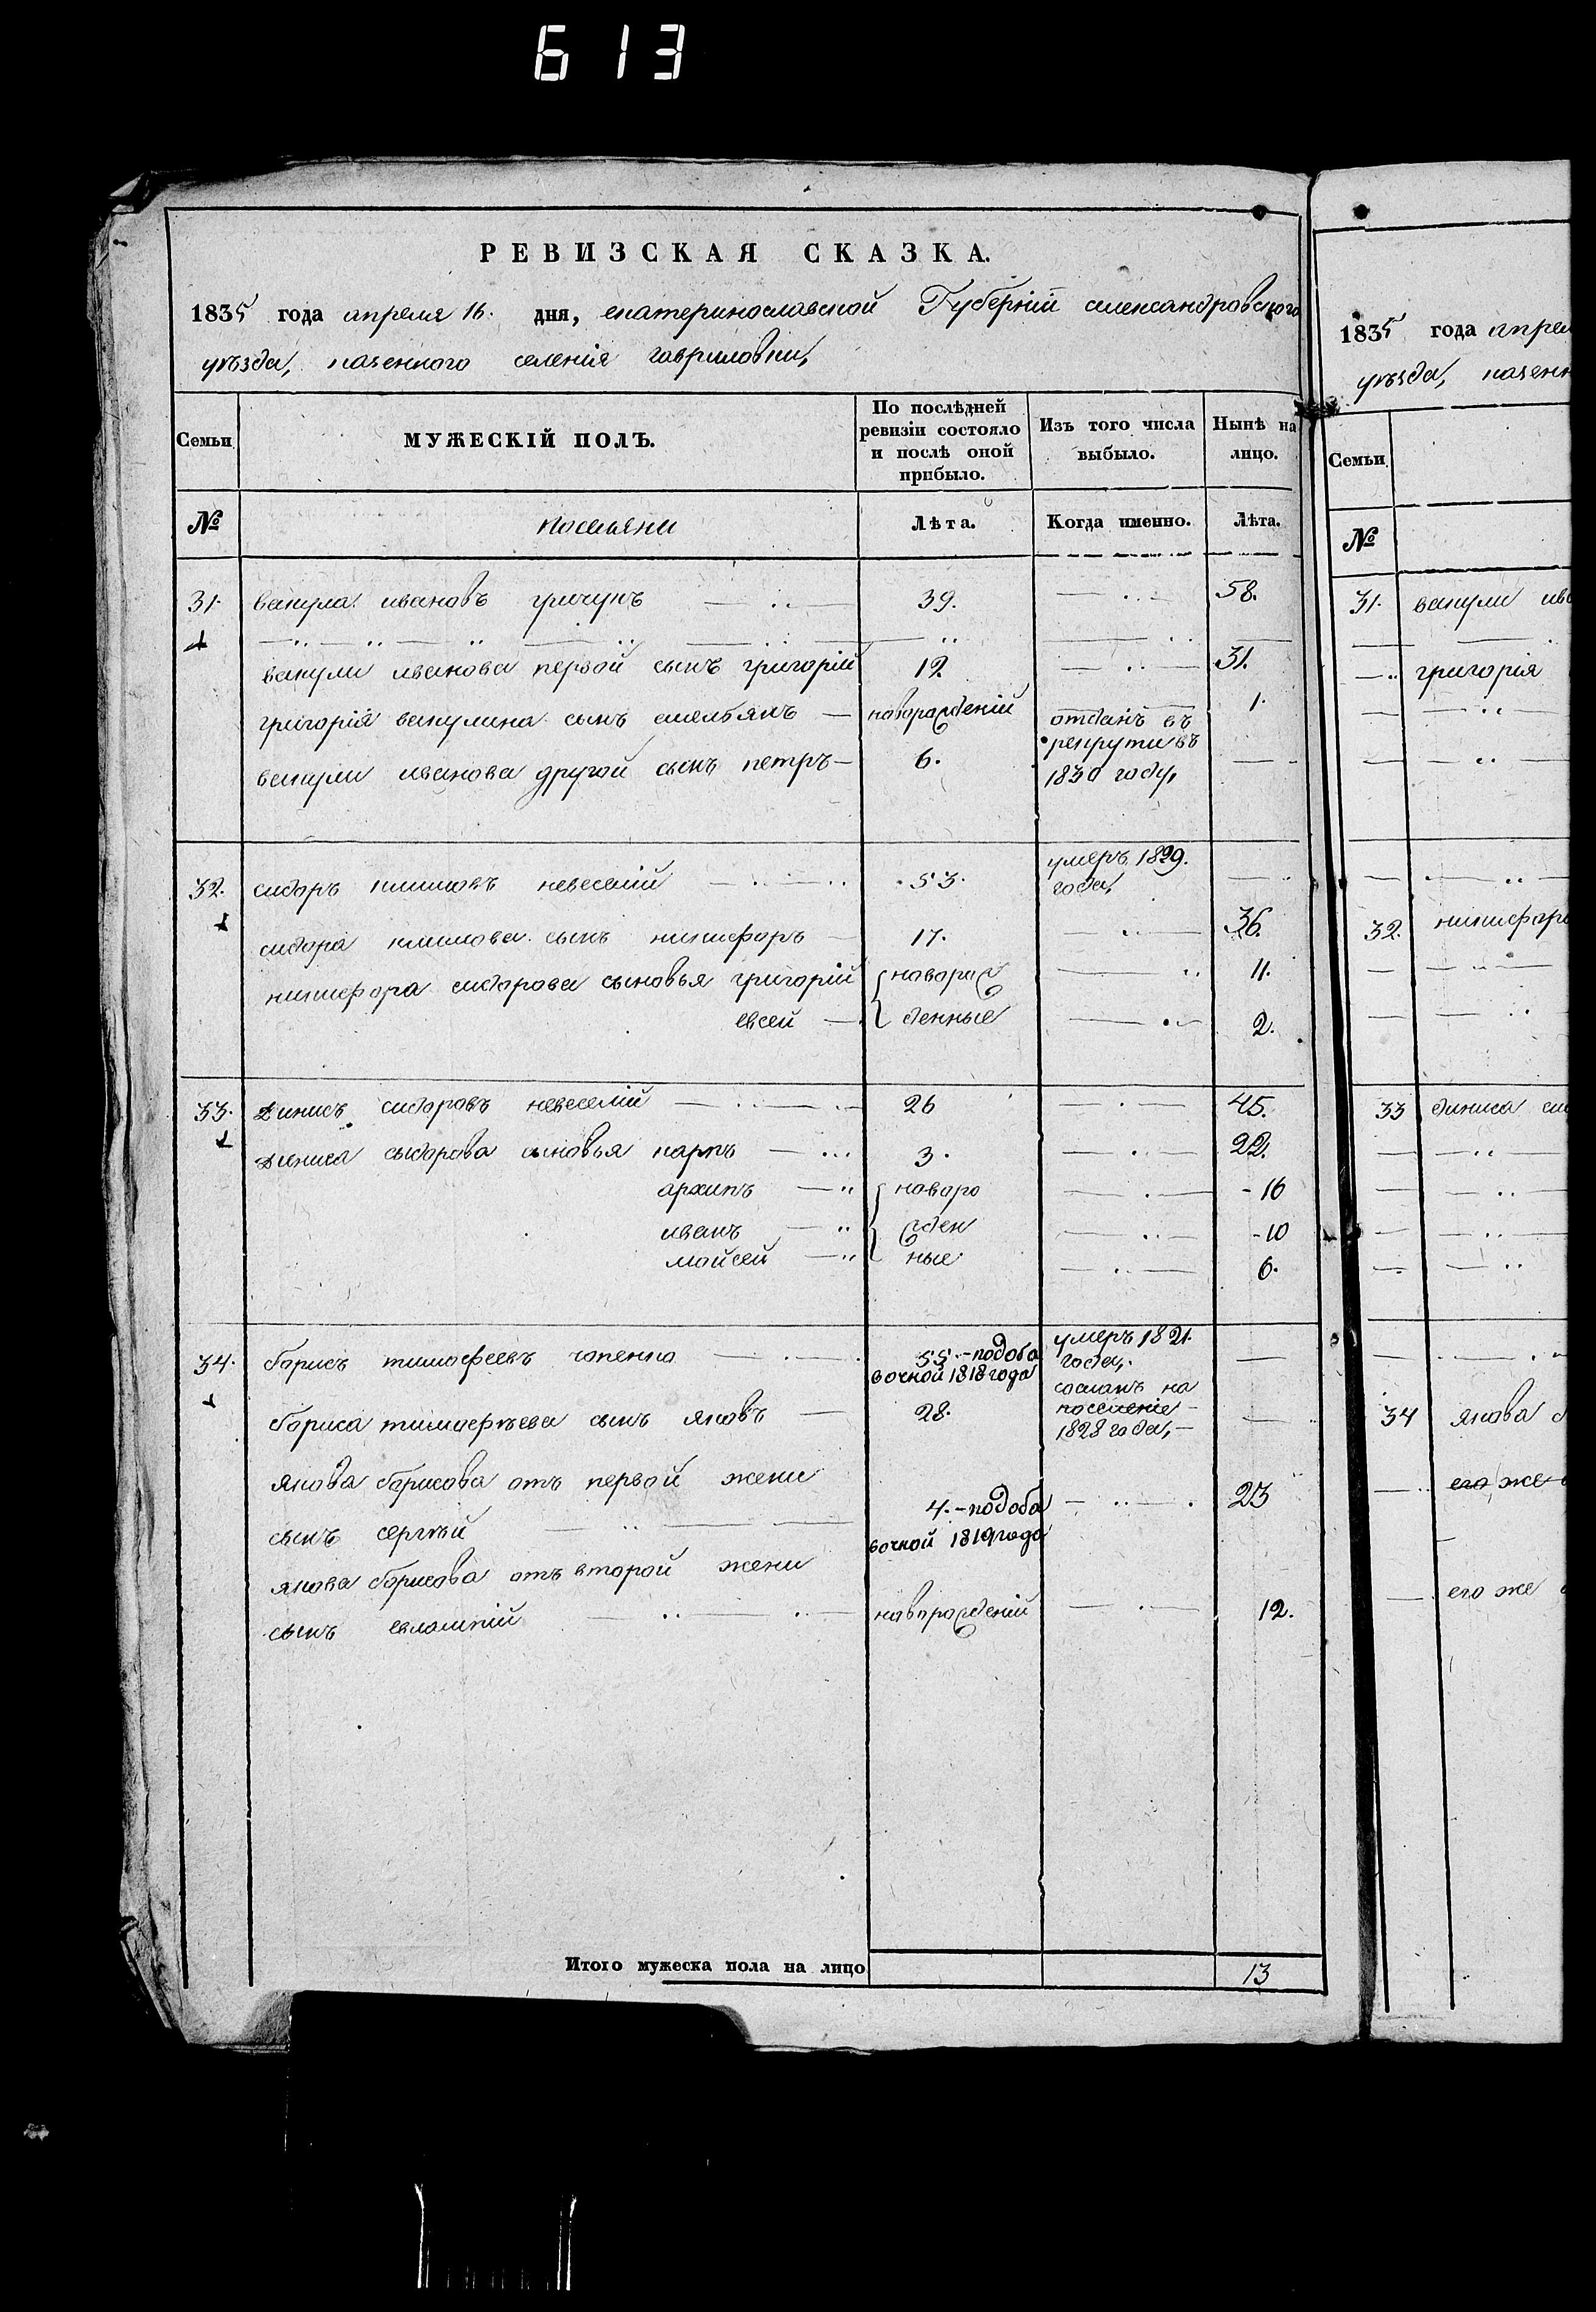 613
РЕВИЗСКАЯ СКАЗКА.
1835 года апреля 16. дня, екатеринославской Губернїи александровского
уѣзда, казенного селенія гавриловки,
Семьи
МУЖЕСКІЙ ПОЛЪ.
По послѣдней ревизіи состояло и послѣ оной прибыло.
Изъ того числа выбыло.
Нынѣ на лицо.
№ поселяни Лѣта. Когда именно. Лѣта.
31. вакула ивановъ гричукъ 39. 58.
вакули иванова первой сынъ григорій 12. 31.
григорія вакулина сынъ емельянъ новорожденій 1.
вакули иванова другой сынъ петръ 6. отданъ въ рекрути въ 1830 году,
32. сидоръ климовъ невеселій 53. умеръ 1829. года,
сидора климова сынъ никифоръ 17. 36.
никифора сидорова сыновья григорій новорож 11.
евсей денные 2.
33. Динисъ сидоровъ невеселій 26 45.
Диниса сидорова сыновья карпъ 3. 22.
архипъ новоро 16
иванъ жден 10
мойсей ные 6.
34. борисъ тимофеевъ гапенко 55.-подоба вочной 1818 года умеръ 1821. года,
бориса тимофѣева сынъ яковъ 28. сосланъ на поселеніе 1828 года,
якова борисова отъ первой жени
сынъ сергѣй 4.-подоба вочной 1819 года 23
якова борисова отъ второй жени
сынъ евлампій новорожденій 12.
Итого мужеска пола на лицо 13
1835 года апрел
уѣзда, казенн
Семьи
№
31. вакули ива
григорія
32. никифора
33 диниса си
34 якова б
его же в
его же